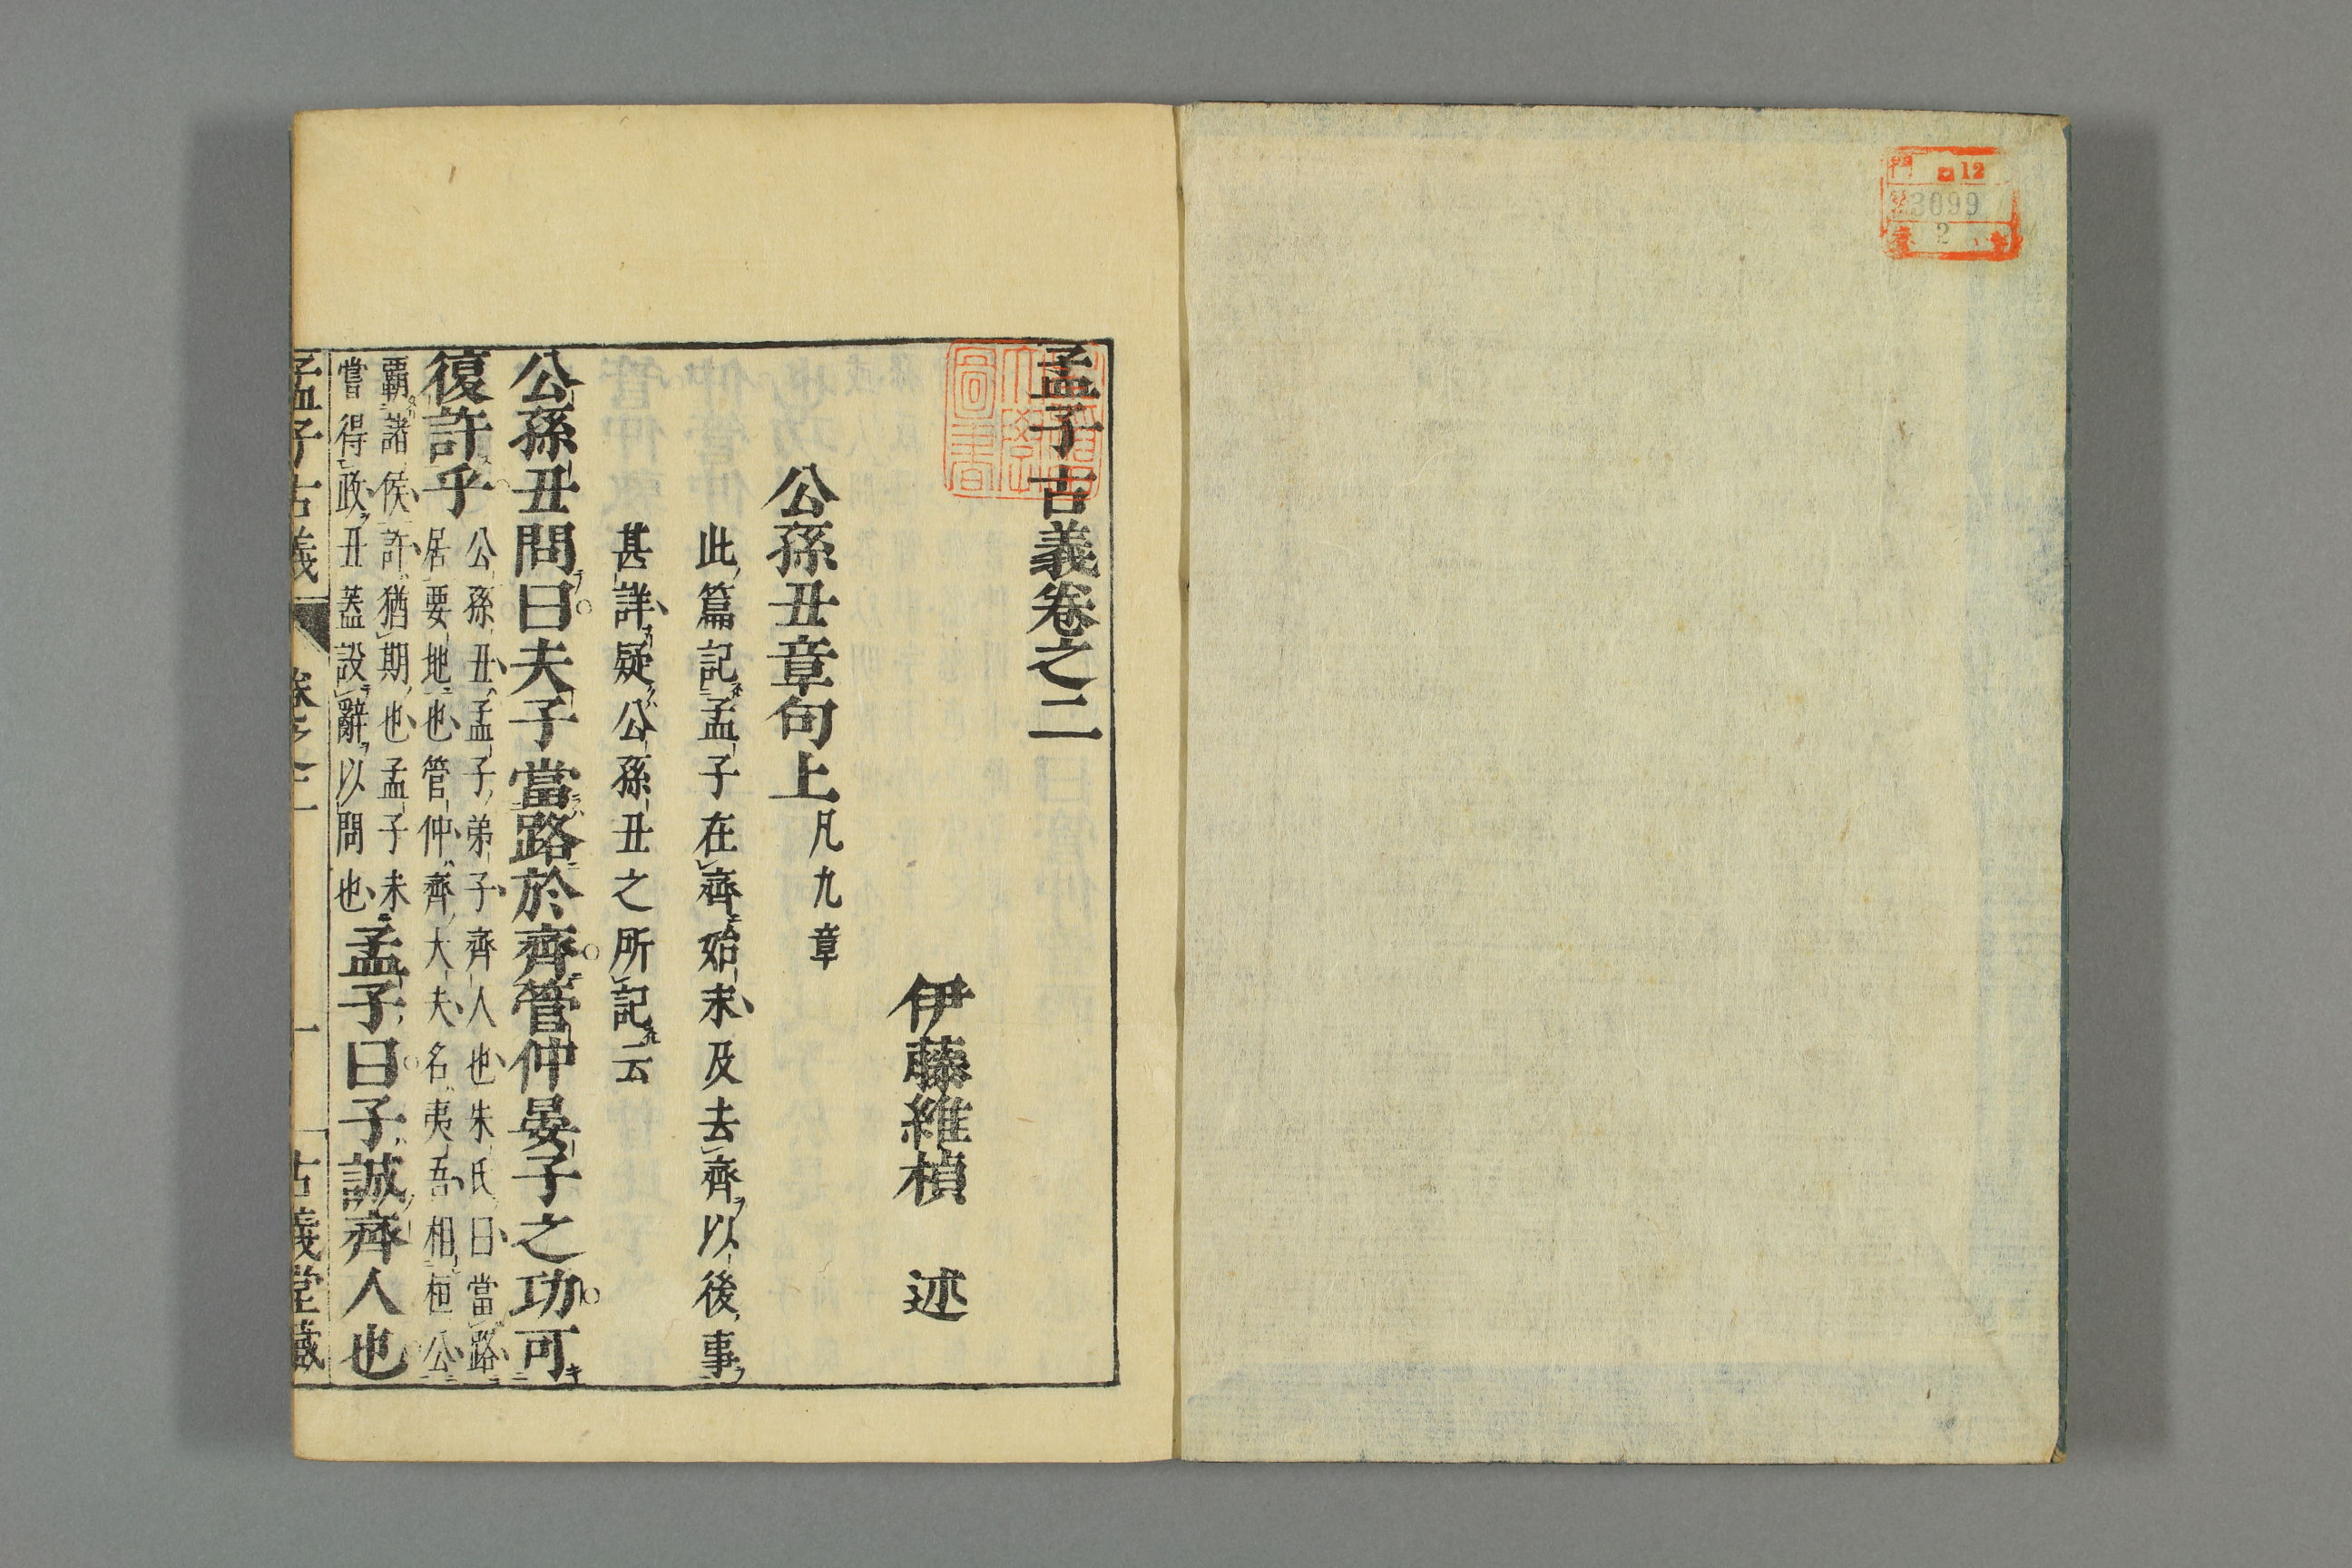 門 ロ12
號 3099
卷 2
孟子古義卷之二
伊藤維楨 述
公孫丑章句上 凡九章
此篇記孟子在齊始末及去齊以後事
甚詳疑公孫丑之所記云
公孫丑問曰夫子當路於齊管仲晏子之功可
復許乎
公孫丑孟子弟子齊人也朱氏曰當路
居要地也管仲齊大夫名夷吾相桓公
霸諸侯許猶期也孟子未
嘗得政丑蓋設辭以問也
孟子曰子誠齊人也
孟子古義 卷之二 一 古義堂藏